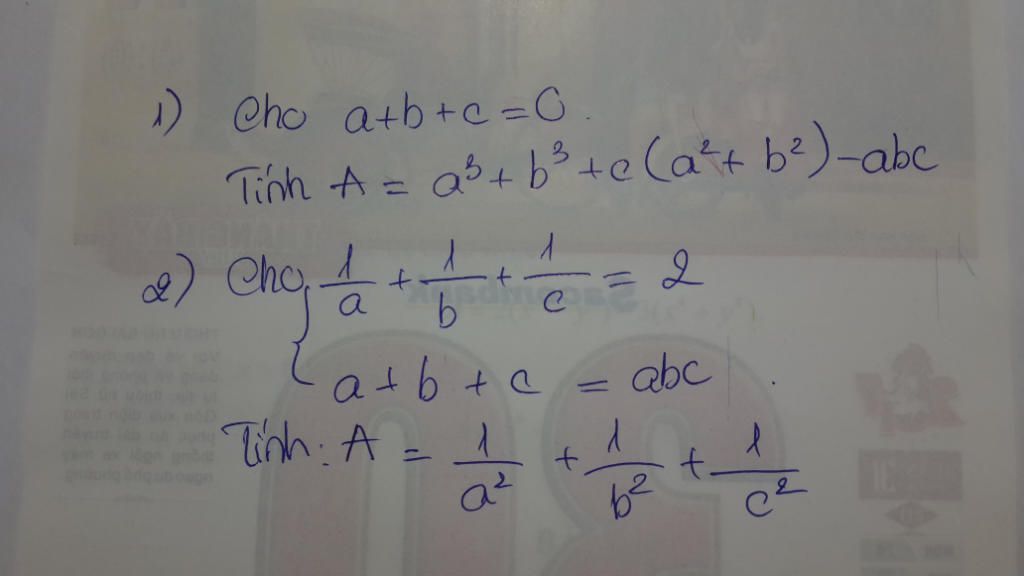 1) Cho a+b+c=0.
Tính A = a³+b³+c(a²+b²)-abc
2) Cho 1/a + 1/b + 1/c = 2
a+b+c = abc.
Tính: A = 1/a² + 1/b² + 1/c²